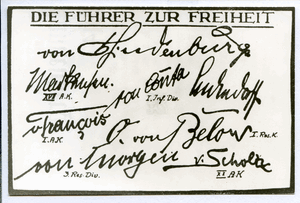 DIE FÜHRER ZUR FREIHEIT
von Hindenburg
Mackensen. von Conta Ludendorff
XVII A.K. I. Inf. Div.
v François O. von Below
I. A.K. I. Res. K.
von Morgen v. Scholtz
3. Res. Div. XX A.K.